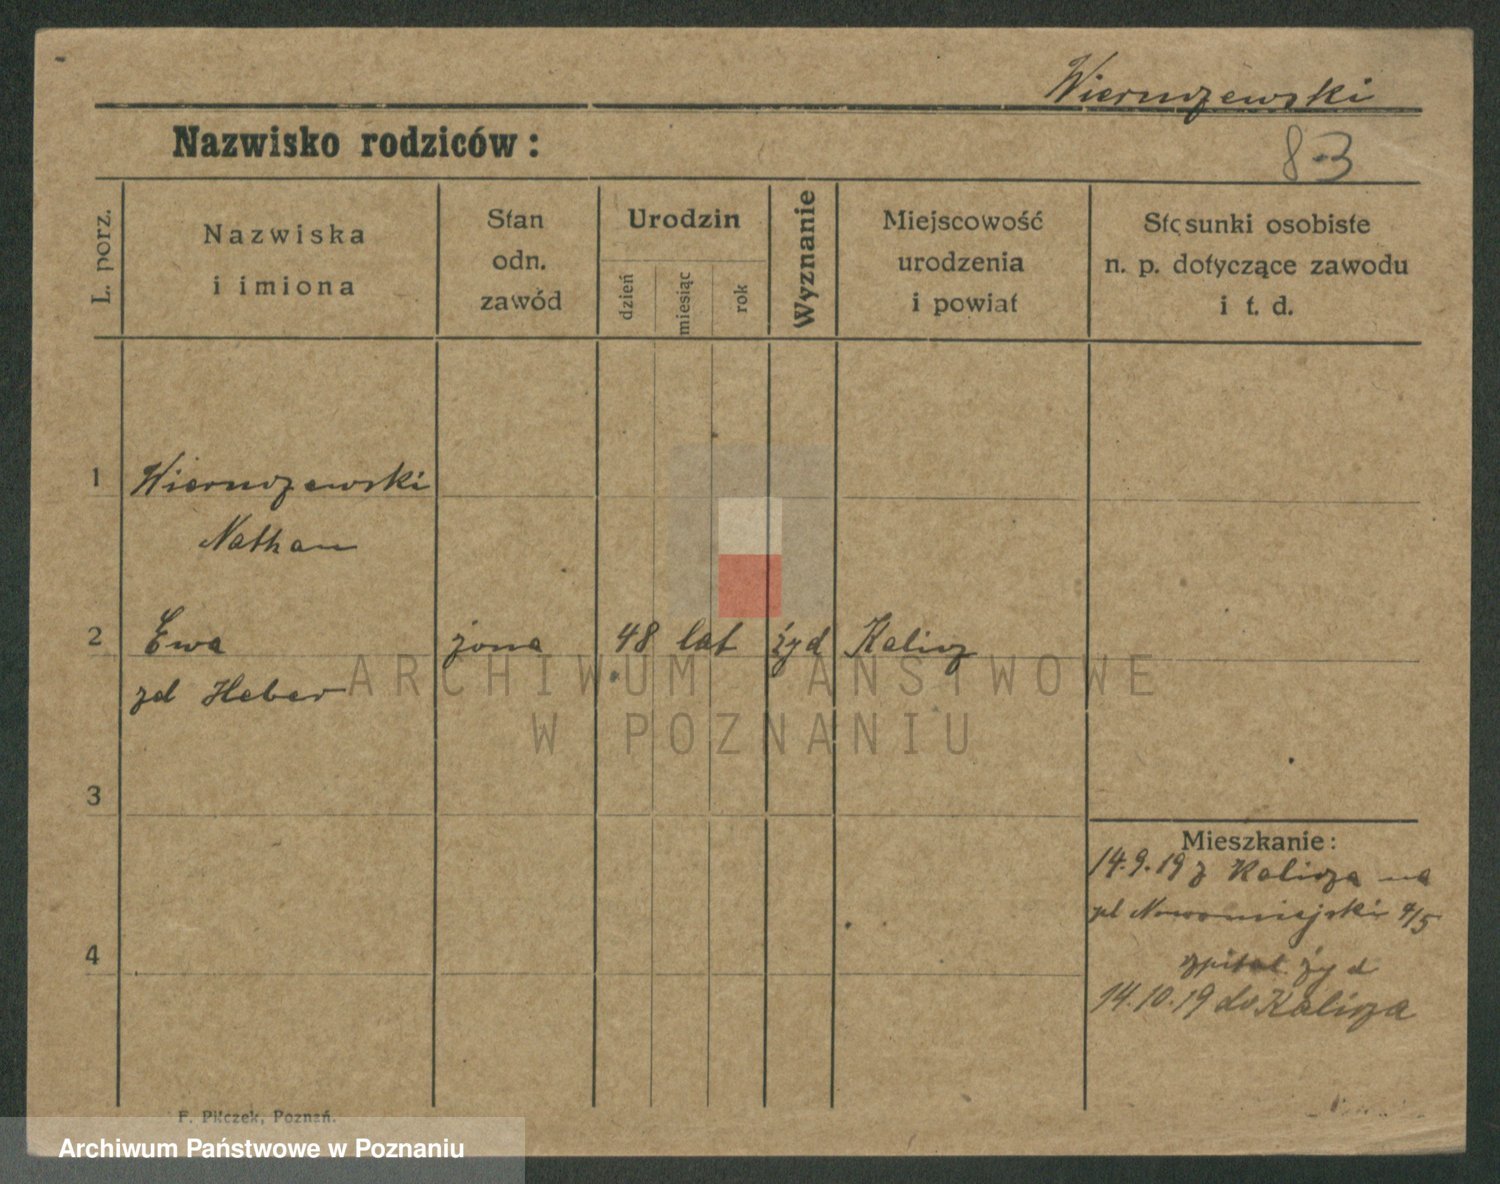 Wieruszewski
Nazwisko rodziców:
8-3
L. porz.
Nazwiska
i imiona
Stan
odn.
zawód
Urodzin
dzień
miesiąc
rok
Wyznanie
Miejscowość
urodzenia
i powiat
Stosunki osobiste
n. p. dotyczące zawodu
i t. d.
1 Wieruszewski
Nathan
2 Ewa żona 48 lat żyd Kalisz
zd Heber
ARCHIWUM PAŃSTWOWE
W POZNANIU
3
Mieszkanie:
14.9.19 z Kalisza na
pl Nowomiejski 4/5
szpital żyd
4
14.10.19 do Kalisza
F. Pilczek, Poznań.
Archiwum Państwowe w Poznaniu